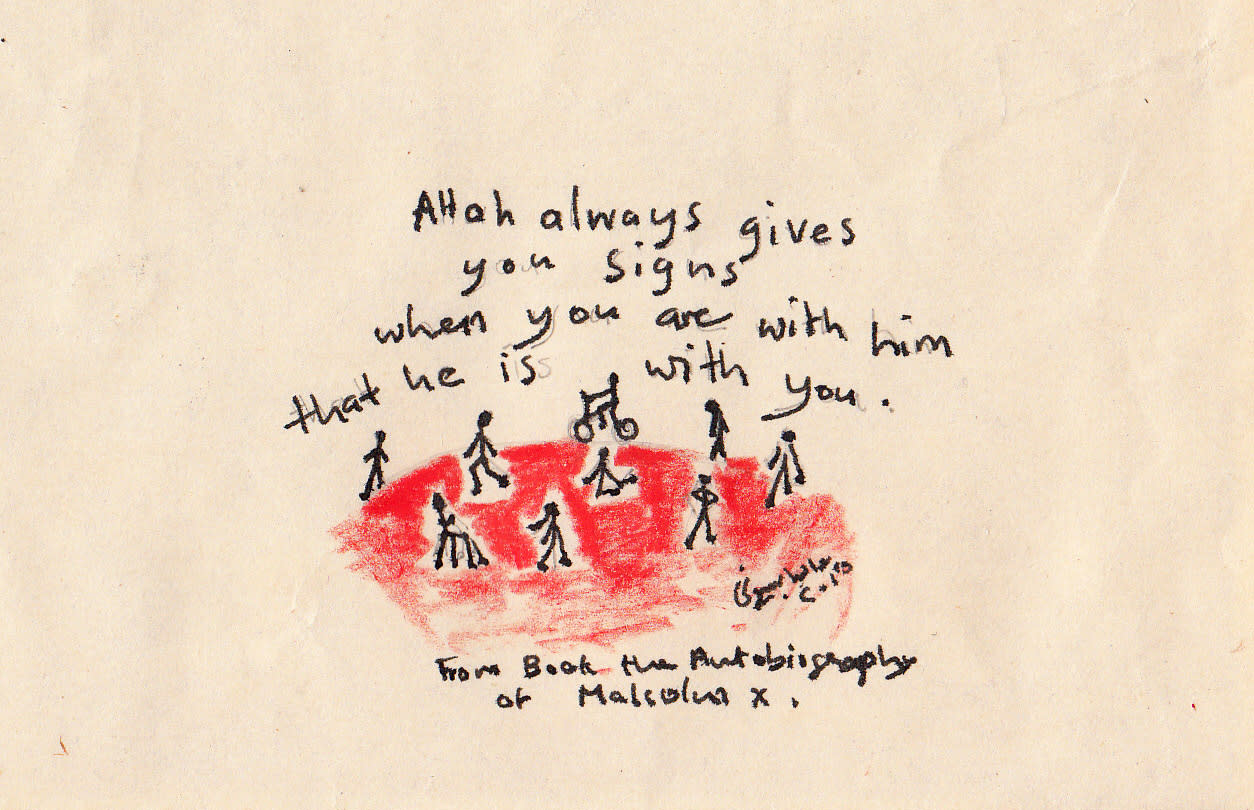 Allah always gives
you signs
when you are with him
that he is with you.
From Book the Autobiography
of Malcolm X.